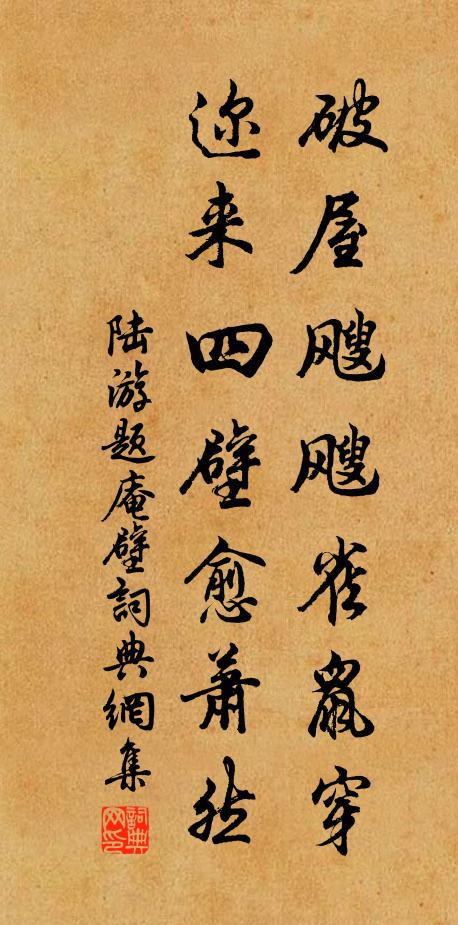 破屋飕飕雀鼠穿
迩来四壁愈萧然
陆游题庵壁詞典網集
詞典网印